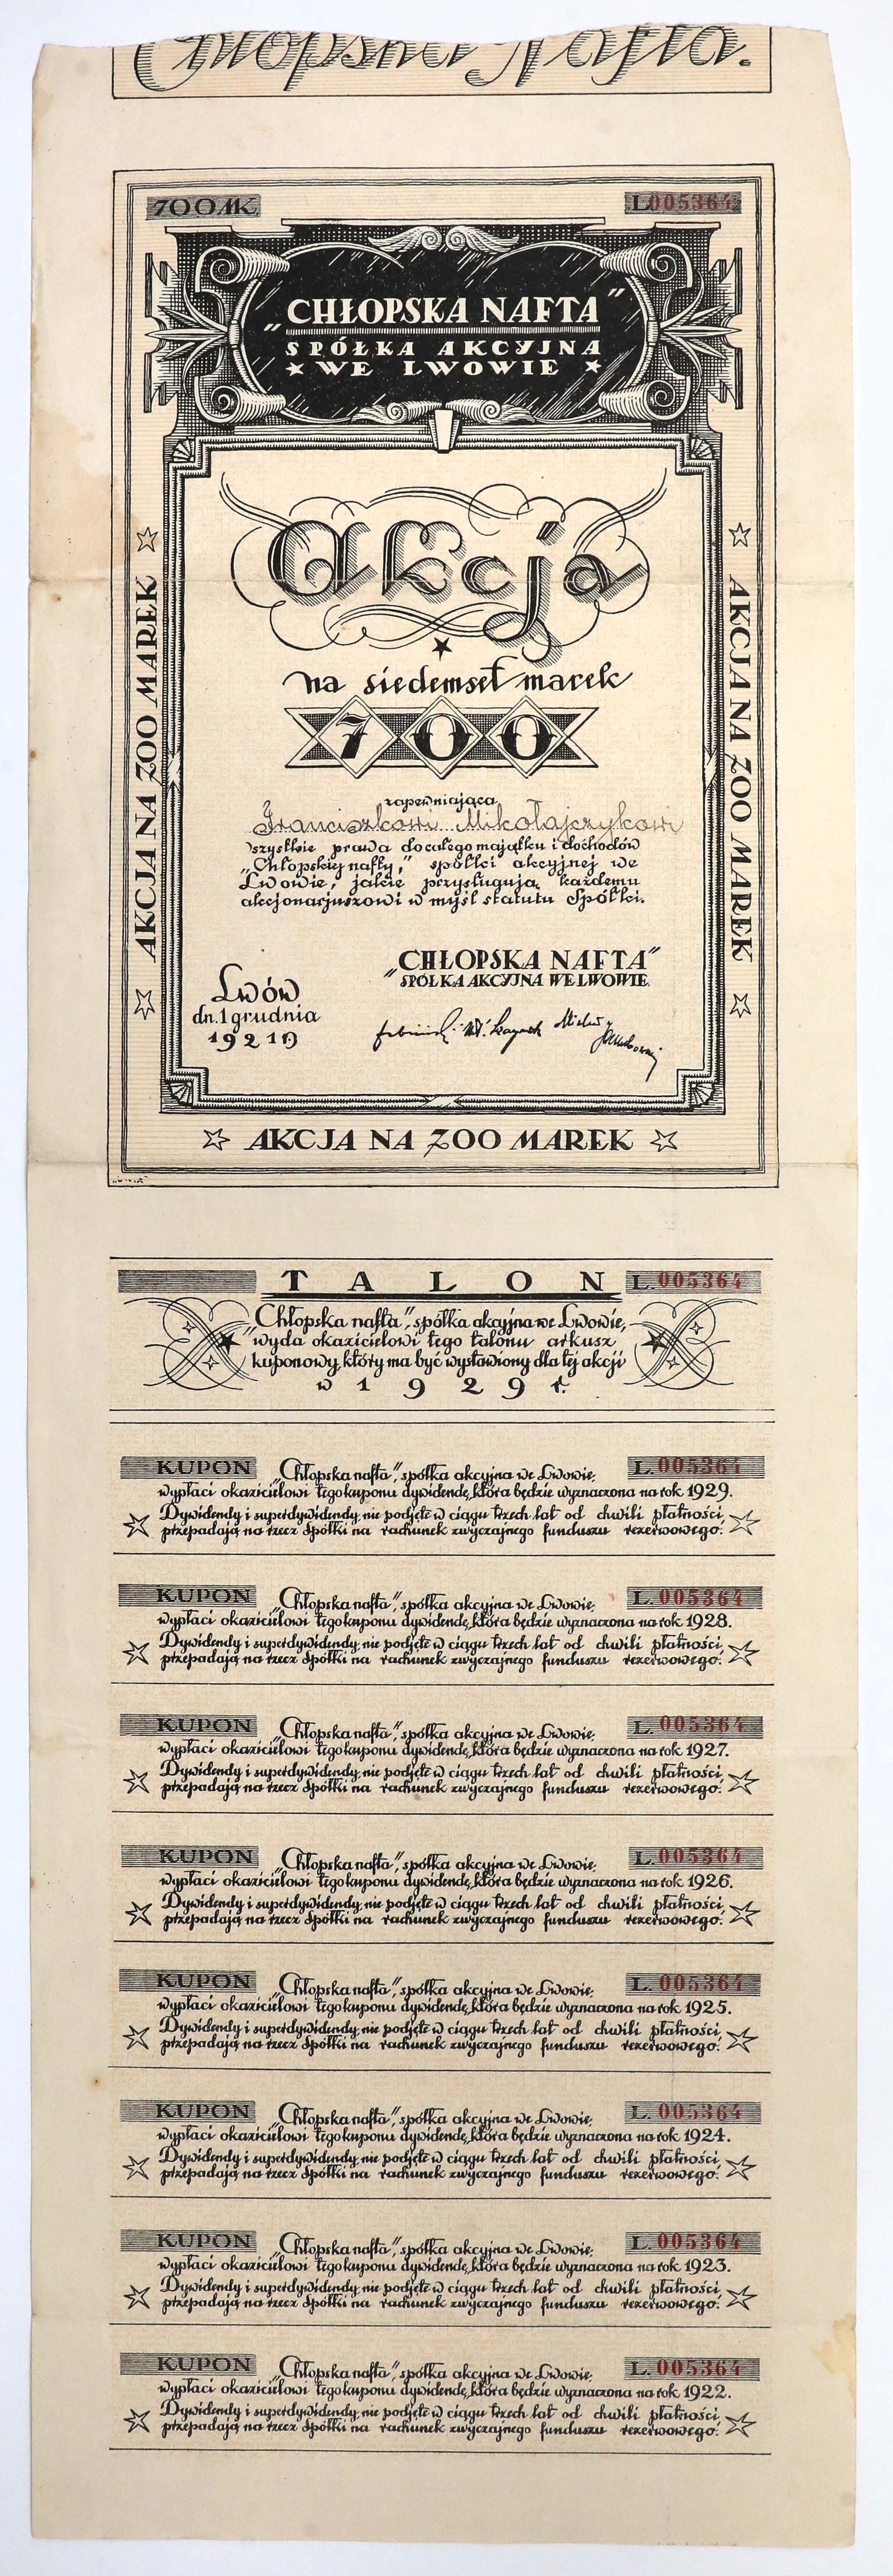 Chłopska Nafta.
700 MK.
L 005364
„CHŁOPSKA NAFTA”
SPÓŁKA AKCYJNA
WE LWOWIE
Akcja
na siedemset marek
700
zapewniająca
Franciszkowi Mikołajczykowi
wszystkie prawa do całego majątku i dochodów
„Chłopskiej nafty,” spółki akcyjnej we
Lwowie, jakie przysługują każdemu
akcjonarjuszowi w myśl statutu Spółki.
„CHŁOPSKA NAFTA”
SPÓŁKA AKCYJNA WE LWOWIE.
Lwów
dn. 1 grudnia
1921 r)
AKCJA NA 700 MAREK
AKCJA NA 700 MAREK
AKCJA NA 700 MAREK
TALON
L. 005364
„Chłopska nafta”, spółka akcyjna we Lwowie,
wyda okazicielowi tego talonu arkusz
kuponowy, który ma być wystawiony dla tej akcji
w 1929 r.
KUPON „Chłopska nafta”, spółka akcyjna we Lwowie, L. 005364
wypłaci okazicielowi tego kuponu dywidendę, która będzie wyznaczona na rok 1929.
Dywidendy i superdywidendy, nie podjęte w ciągu trzech lat od chwili płatności,
przepadają na rzecz Spółki na rachunek zwyczajnego funduszu rezerwowego.
KUPON „Chłopska nafta”, spółka akcyjna we Lwowie, L. 005364
wypłaci okazicielowi tego kuponu dywidendę, która będzie wyznaczona na rok 1928.
Dywidendy i superdywidendy, nie podjęte w ciągu trzech lat od chwili płatności,
przepadają na rzecz Spółki na rachunek zwyczajnego funduszu rezerwowego.
KUPON „Chłopska nafta”, spółka akcyjna we Lwowie, L. 005364
wypłaci okazicielowi tego kuponu dywidendę, która będzie wyznaczona na rok 1927.
Dywidendy i superdywidendy, nie podjęte w ciągu trzech lat od chwili płatności,
przepadają na rzecz Spółki na rachunek zwyczajnego funduszu rezerwowego.
KUPON „Chłopska nafta”, spółka akcyjna we Lwowie, L. 005364
wypłaci okazicielowi tego kuponu dywidendę, która będzie wyznaczona na rok 1926.
Dywidendy i superdywidendy, nie podjęte w ciągu trzech lat od chwili płatności,
przepadają na rzecz Spółki na rachunek zwyczajnego funduszu rezerwowego.
KUPON „Chłopska nafta”, spółka akcyjna we Lwowie, L. 005364
wypłaci okazicielowi tego kuponu dywidendę, która będzie wyznaczona na rok 1925.
Dywidendy i superdywidendy, nie podjęte w ciągu trzech lat od chwili płatności,
przepadają na rzecz Spółki na rachunek zwyczajnego funduszu rezerwowego.
KUPON „Chłopska nafta”, spółka akcyjna we Lwowie, L. 005364
wypłaci okazicielowi tego kuponu dywidendę, która będzie wyznaczona na rok 1924.
Dywidendy i superdywidendy, nie podjęte w ciągu trzech lat od chwili płatności,
przepadają na rzecz Spółki na rachunek zwyczajnego funduszu rezerwowego.
KUPON „Chłopska nafta”, spółka akcyjna we Lwowie, L. 005364
wypłaci okazicielowi tego kuponu dywidendę, która będzie wyznaczona na rok 1923.
Dywidendy i superdywidendy, nie podjęte w ciągu trzech lat od chwili płatności,
przepadają na rzecz Spółki na rachunek zwyczajnego funduszu rezerwowego.
KUPON „Chłopska nafta”, spółka akcyjna we Lwowie, L. 005364
wypłaci okazicielowi tego kuponu dywidendę, która będzie wyznaczona na rok 1922.
Dywidendy i superdywidendy, nie podjęte w ciągu trzech lat od chwili płatności,
przepadają na rzecz Spółki na rachunek zwyczajnego funduszu rezerwowego.